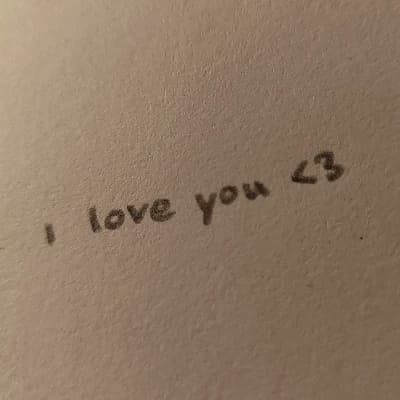 I love you <3